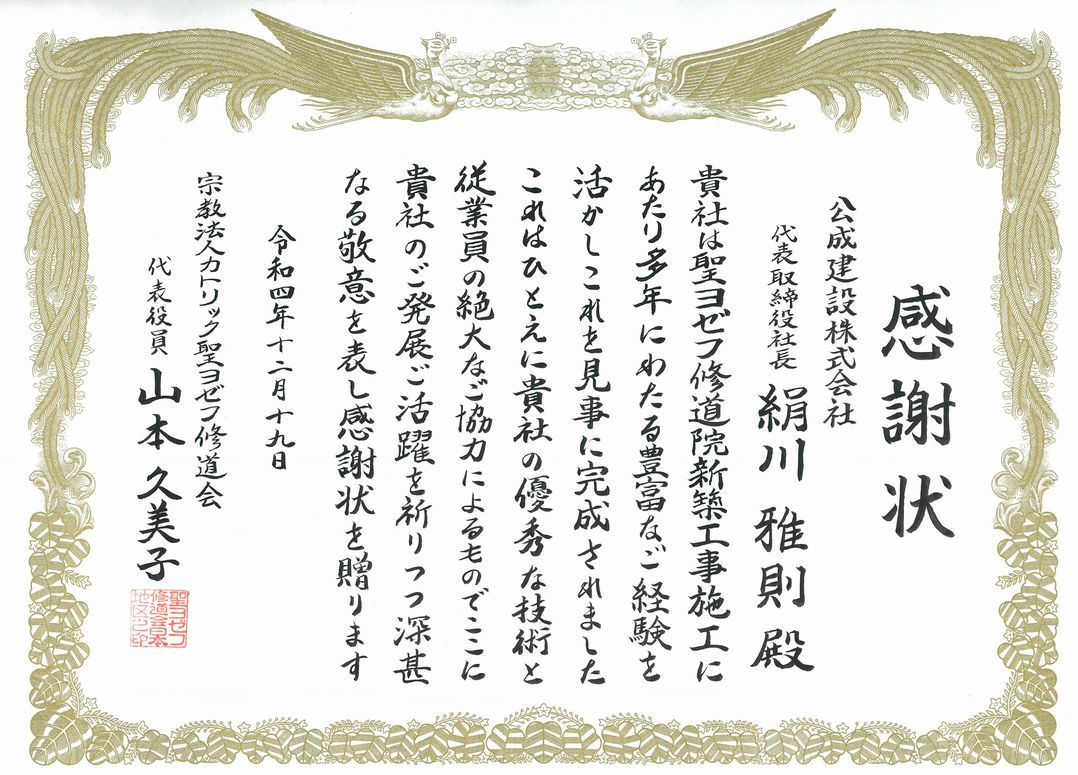 感謝状
公成建設株式会社
代表取締役社長 絹川雅則殿
貴社は聖ヨゼフ修道院新築工事施工に
あたり多年にわたる豊富なご経験を
活かしこれを見事に完成されました
これはひとえに貴社の優秀な技術と
従業員の絶大なご協力によるものでここに
貴社のご発展ご活躍を祈りつつ深甚
なる敬意を表し感謝状を贈ります
令和四年十二月十九日
宗教法人カトリック聖ヨゼフ修道会
代表役員 山本久美子
聖ヨゼフ
修道会日本
地区之印